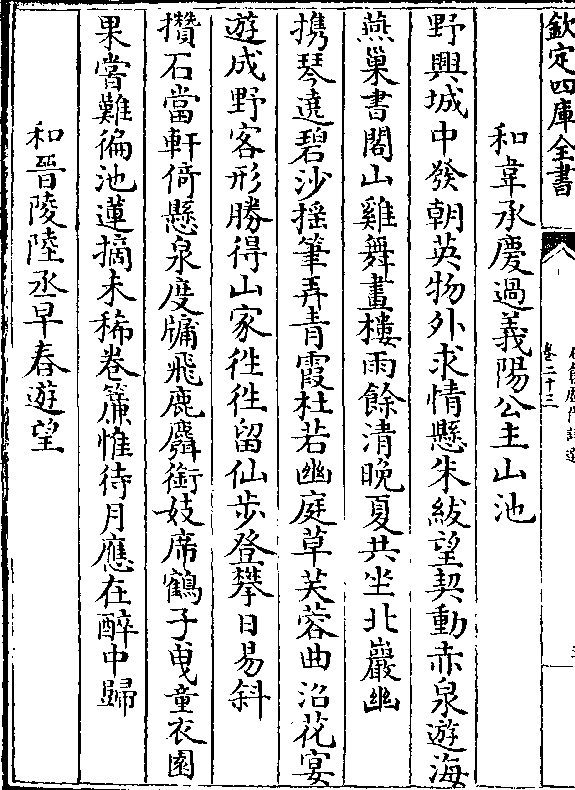 欽定四庫全書
卷二十三
和韋承慶過義陽公主山池
野興城中發朝英物外求情懸朱紱望契動赤泉遊海
燕巢書閣山雞舞畫樓雨餘清晚夏共坐北巖幽
攜琴遶碧沙搖筆弄青霞杜若幽庭草芙蓉曲沼花宴
遊成野客形勝得山家徃徃留仙步登攀日易斜
攢石當軒倚懸泉度牖飛鹿麛銜妓席鶴子曵童衣園
果嘗難徧池蓮摘未稀卷簾惟待月應在醉中歸
和晉陵陸丞早春遊望